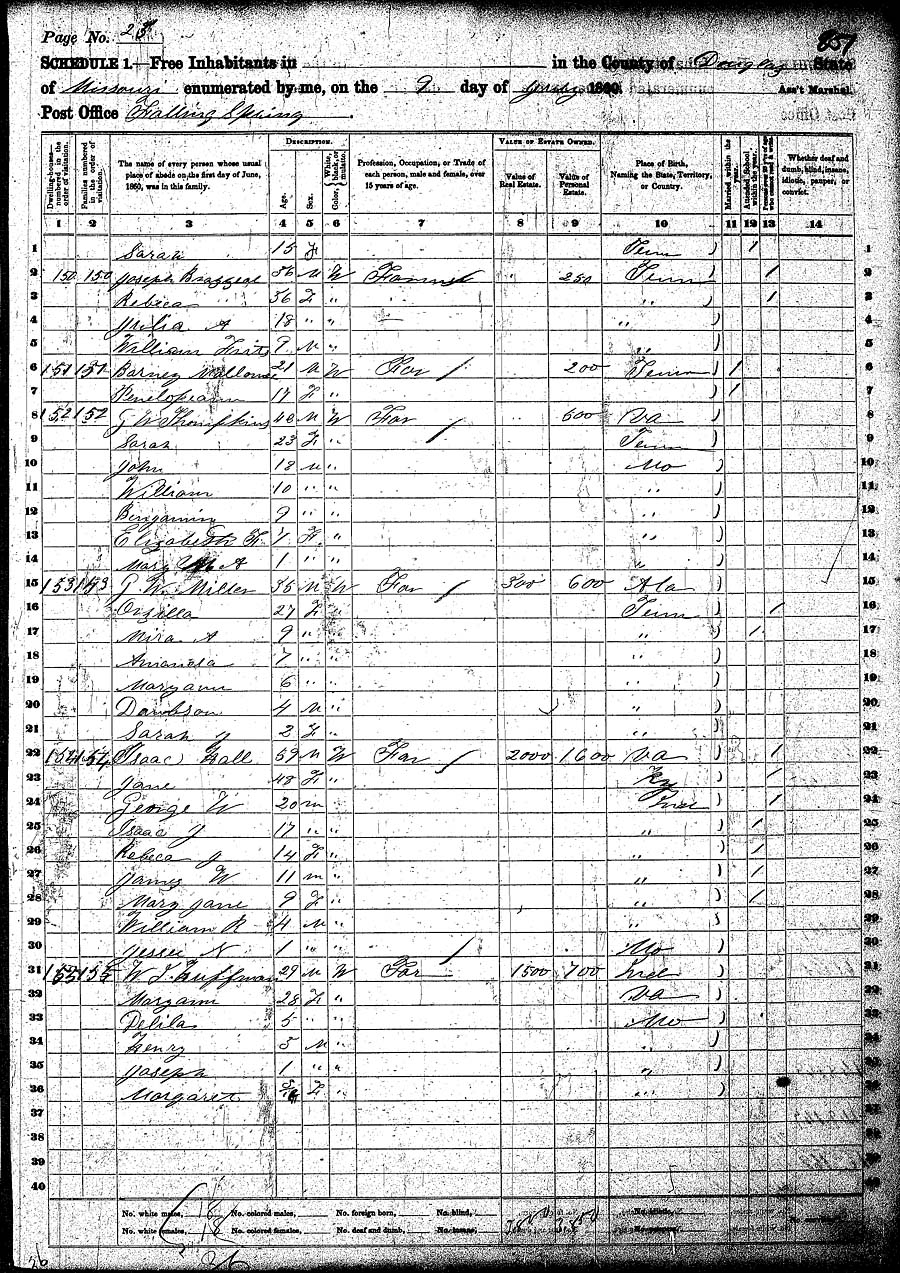 Page No. 25
851
SCHEDULE 1.—Free Inhabitants in in the County of Douglas State
of Missouri enumerated by me, on the 9 day of July 1860. Ass't Marshal.
Post Office Falling Spring
DESCRIPTION. VALUE OF ESTATE OWNED.
Dwelling-houses—numbered in the order of visitation. Families numbered in the order of visitation. The name of every person whose usual place of abode on the first day of June, 1860, was in this family. Age. Sex. Color, White, black, or mulatto. Profession, Occupation, or Trade of each person, male and female, over 15 years of age. Value of Real Estate. Value of Personal Estate. Place of Birth, Naming the State, Territory, or Country. Married within the year. Attended School within the year. Persons over 20 y'rs of age who cannot read & write. Whether deaf and dumb, blind, insane, idiotic, pauper, or convict.
1 2 3 4 5 6 7 8 9 10 11 12 13 14
1 Sarah 15 F Tenn 1 1
2 150 150 Joseph 56 M W Farmer 250 Tenn 1 2
3 Rebeca 56 F " " 1 3
4 A 18 " " — " 4
5 William 9 M " " 5
6 151 151 Barney 21 M W Far 200 Tenn 1 6
7 17 F " 1 7
8 152 152 J W Thompkins 40 M W Far 600 Va 8
9 Sarah 23 F " Tenn 9
10 John 18 M " Mo 10
11 William 10 " " " 11
12 Benjamin 9 " " " 12
13 Elizabeth 7 F " " 13
14 Mary A 1 " " " 14
15 153 153 J. W. Miller 35 M W Far 300 600 Ala 15
16 Orzilla 27 F Tenn 1 16
17 Mira A 9 " " 1 17
18 Amanda 7 " " " 18
19 Maryann 6 " " " 19
20 4 M " " 20
21 Sarah J 2 F " 21
22 154 154 Isaac Hall 59 M W Far 2000 1600 Va 1 22
23 Jane 48 F " Ky 1 23
24 George W 20 m 1 24
25 Isaac J 17 " " " 1 25
26 Rebeca J 14 F " " 1 26
27 James W 11 m " " 1 27
28 Mary Jane 9 F " " 1 28
29 William R 4 M " " 29
30 Jessee N 1 " " Mo 30
31 155 155 W. J. Huffman 29 M W Far 1500 700 31
32 Maryann 28 F " Va 32
33 Delila 5 " " Mo 33
34 Henry 3 M " " 34
35 Joseph 1 " " " 35
36 Margaret F " " 36
37
38
39
40
No. white males, 18 No. colored males, No. foreign born, No. blind, No. idiotic,
No. white females, 18 No. colored females, No. deaf and dumb, No. insane,
36
26